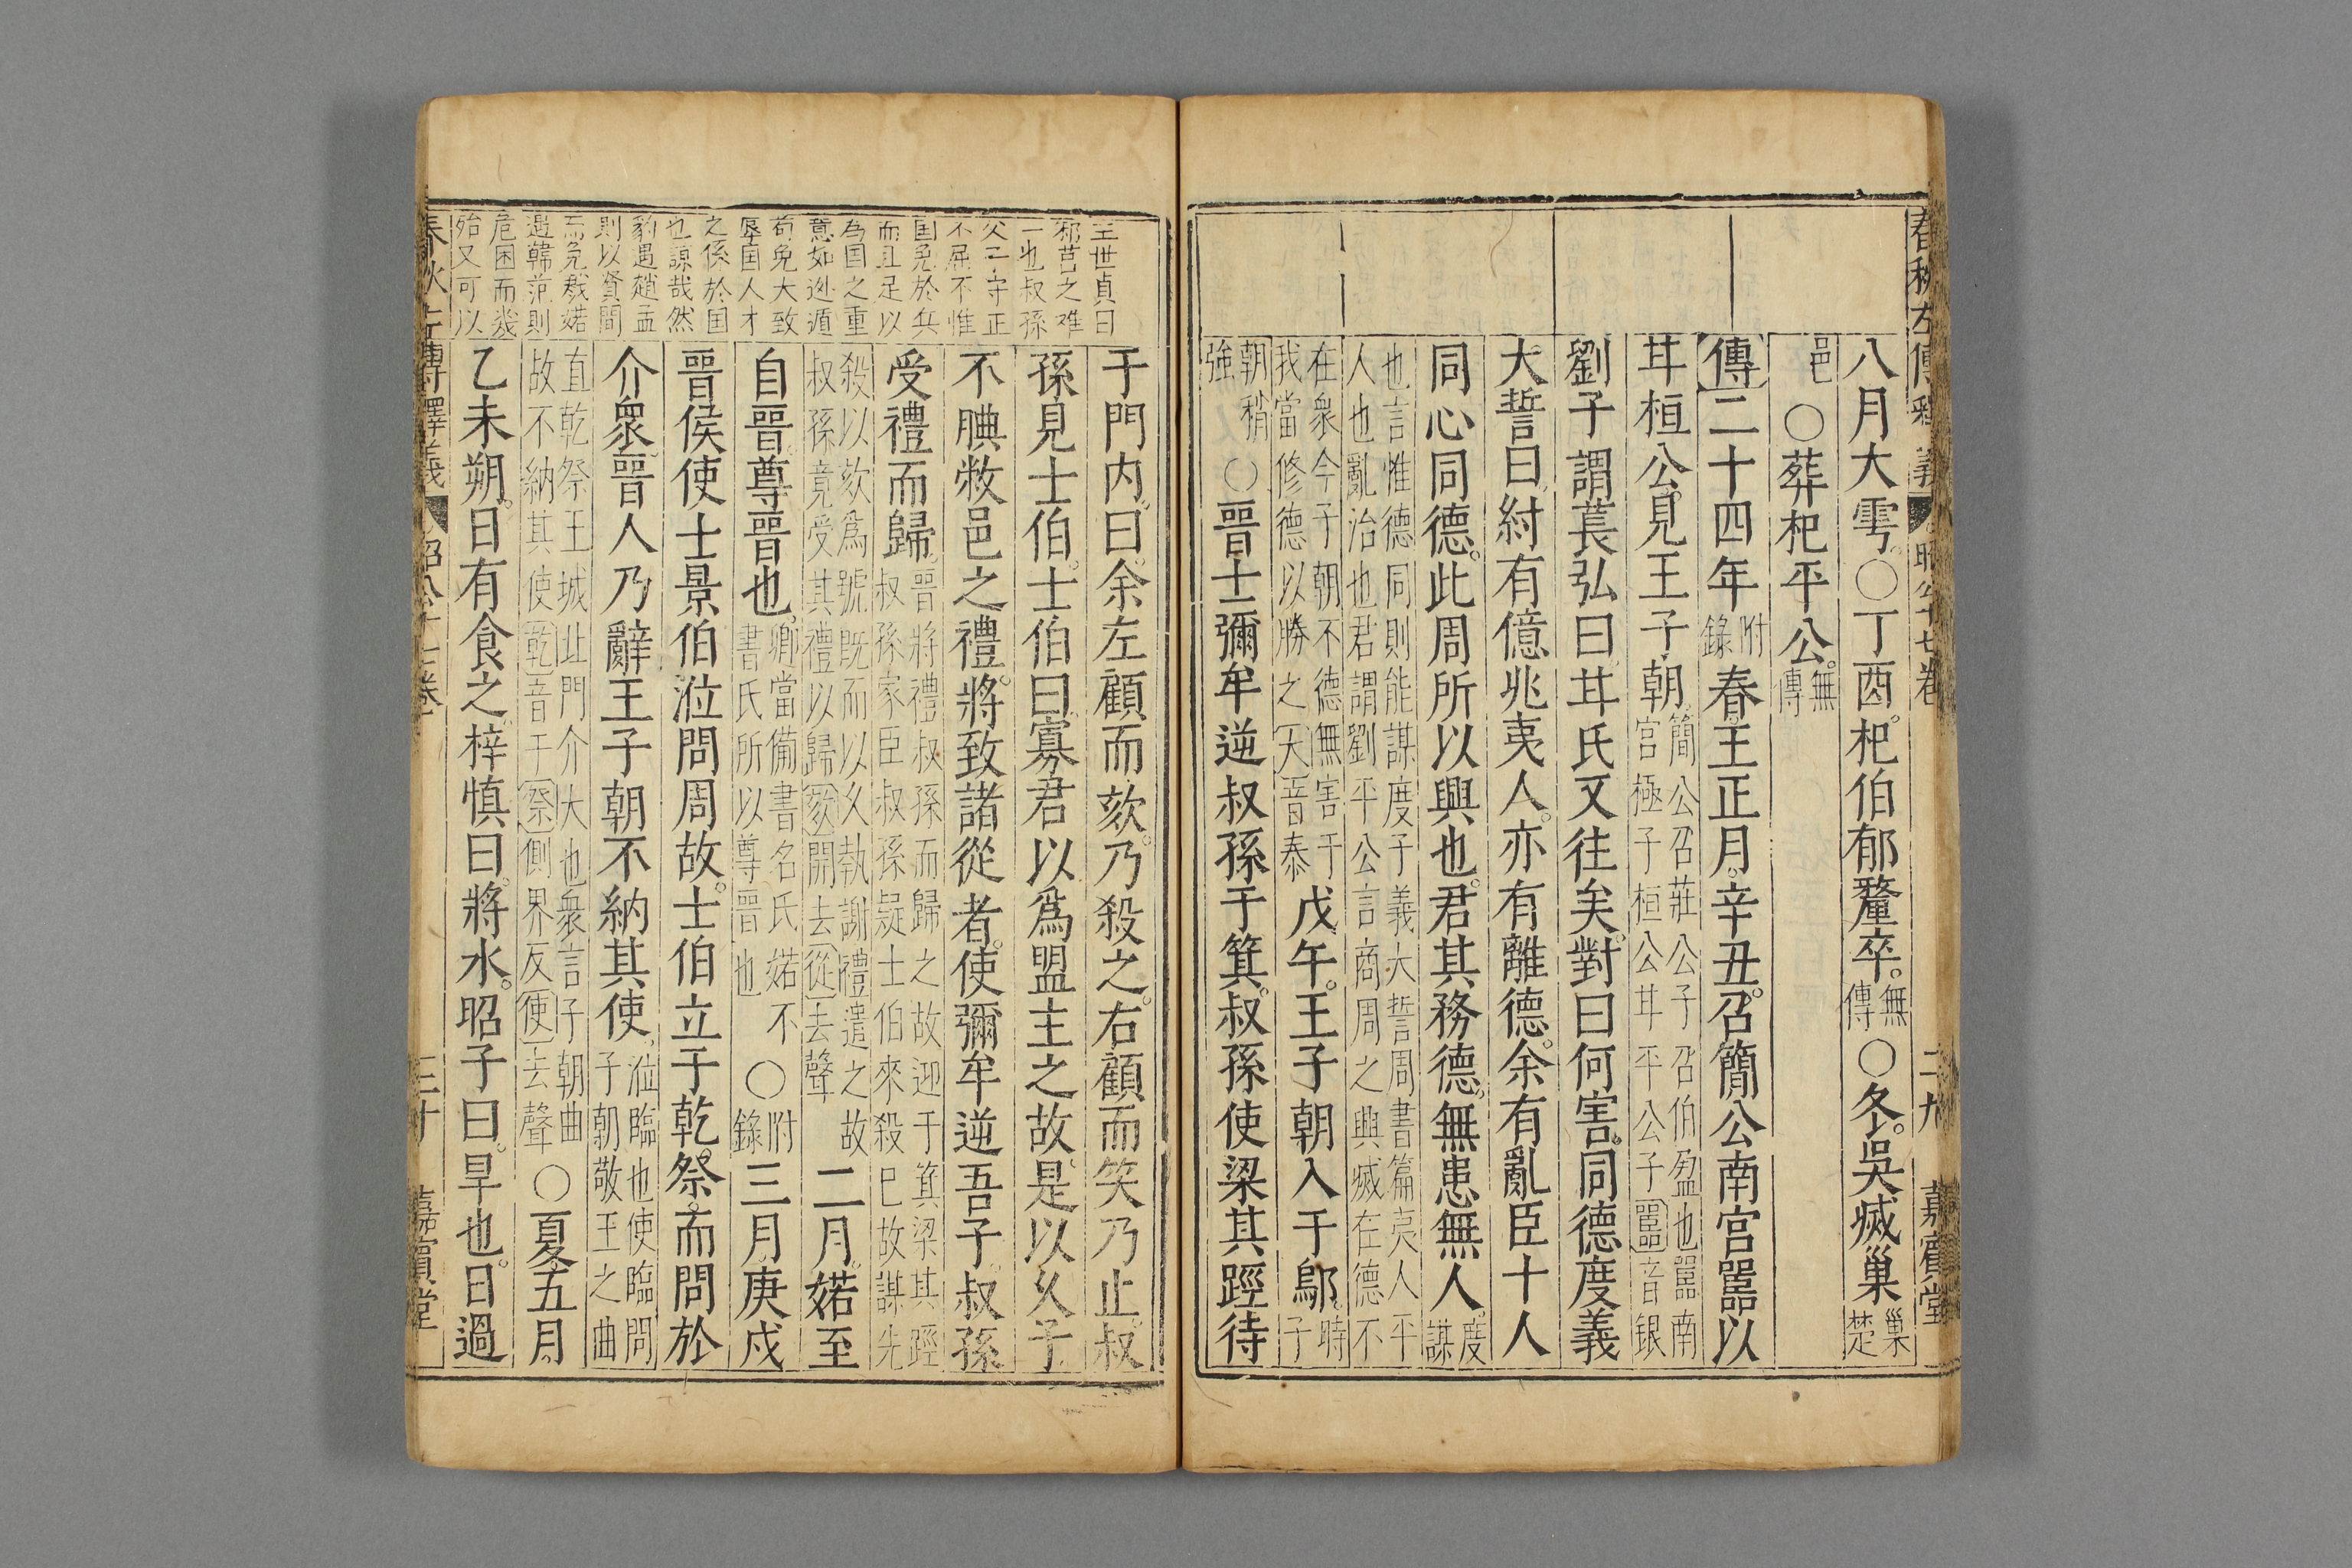 春秋左傳釋義 昭公十七卷 二九 嘉賓堂
八月大雩○丁酉杞伯郁釐卒無傳○冬吳滅巢巢楚
邑○葬杞平公無傳
傳二十四年附錄春王正月辛丑召簡公南宮嚚以
甘桓公見王子朝簡公召莊公子召伯盈也嚚南宮極子桓公甘平公子嚚音銀
劉子謂萇弘曰甘氏又往矣對曰何害同德度義
大誓曰紂有億兆夷人亦有離德余有亂臣十人
同心同德此周所以興也君其務德無患無人度謀
也言惟德同則能謀度子義大誓周書篇夷人平人也亂治也君謂劉平公言商周之興滅在德不
在衆今子朝不德無害于我當修德以勝之大音泰戊午王子朝入于鄔時子
朝稍強○晉士彌牟逆叔孫于箕叔孫使梁其踁待
于門內曰余左顧而欬乃殺之右顧而笑乃止叔
孫見士伯士伯曰寡君以爲盟主之故是以久子
不腆敝邑之禮將致諸從者使彌牟逆吾子叔孫
受禮而歸晉將禮叔孫而歸之故迎于箕梁其踁叔孫家臣叔孫疑士伯來殺已故謀先
殺以欬爲號既而以久執謝禮遣之故叔孫竟受其禮以歸欬開去從去聲二月婼至
自晉尊晉也卿當備書名氏婼不書氏所以尊晉也○附錄三月庚戍
晉侯使士景伯涖問周故士伯立于乾祭而問於
介衆晉人乃辭王子朝不納其使涖臨也使臨問子朝敬王之曲
直乾祭王城北門介大也衆言子朝曲故不納其使乾音干祭側界反使去聲○夏五月
乙未朔日有食之梓慎曰將水昭子曰旱也日過
王世貞曰
邾莒之难
一也叔孫
父子守正
不屈不惟
国免於兵
而且足以
為国之重
意如逊遁
苟免大致
辱国人才
之係於国
也諒哉然
豹遇趙孟
則以賢間
而免戮婼
遇韓范則
危困而幾
殆又可以
春秋左傳釋義 昭公十七卷 三十 嘉賓堂